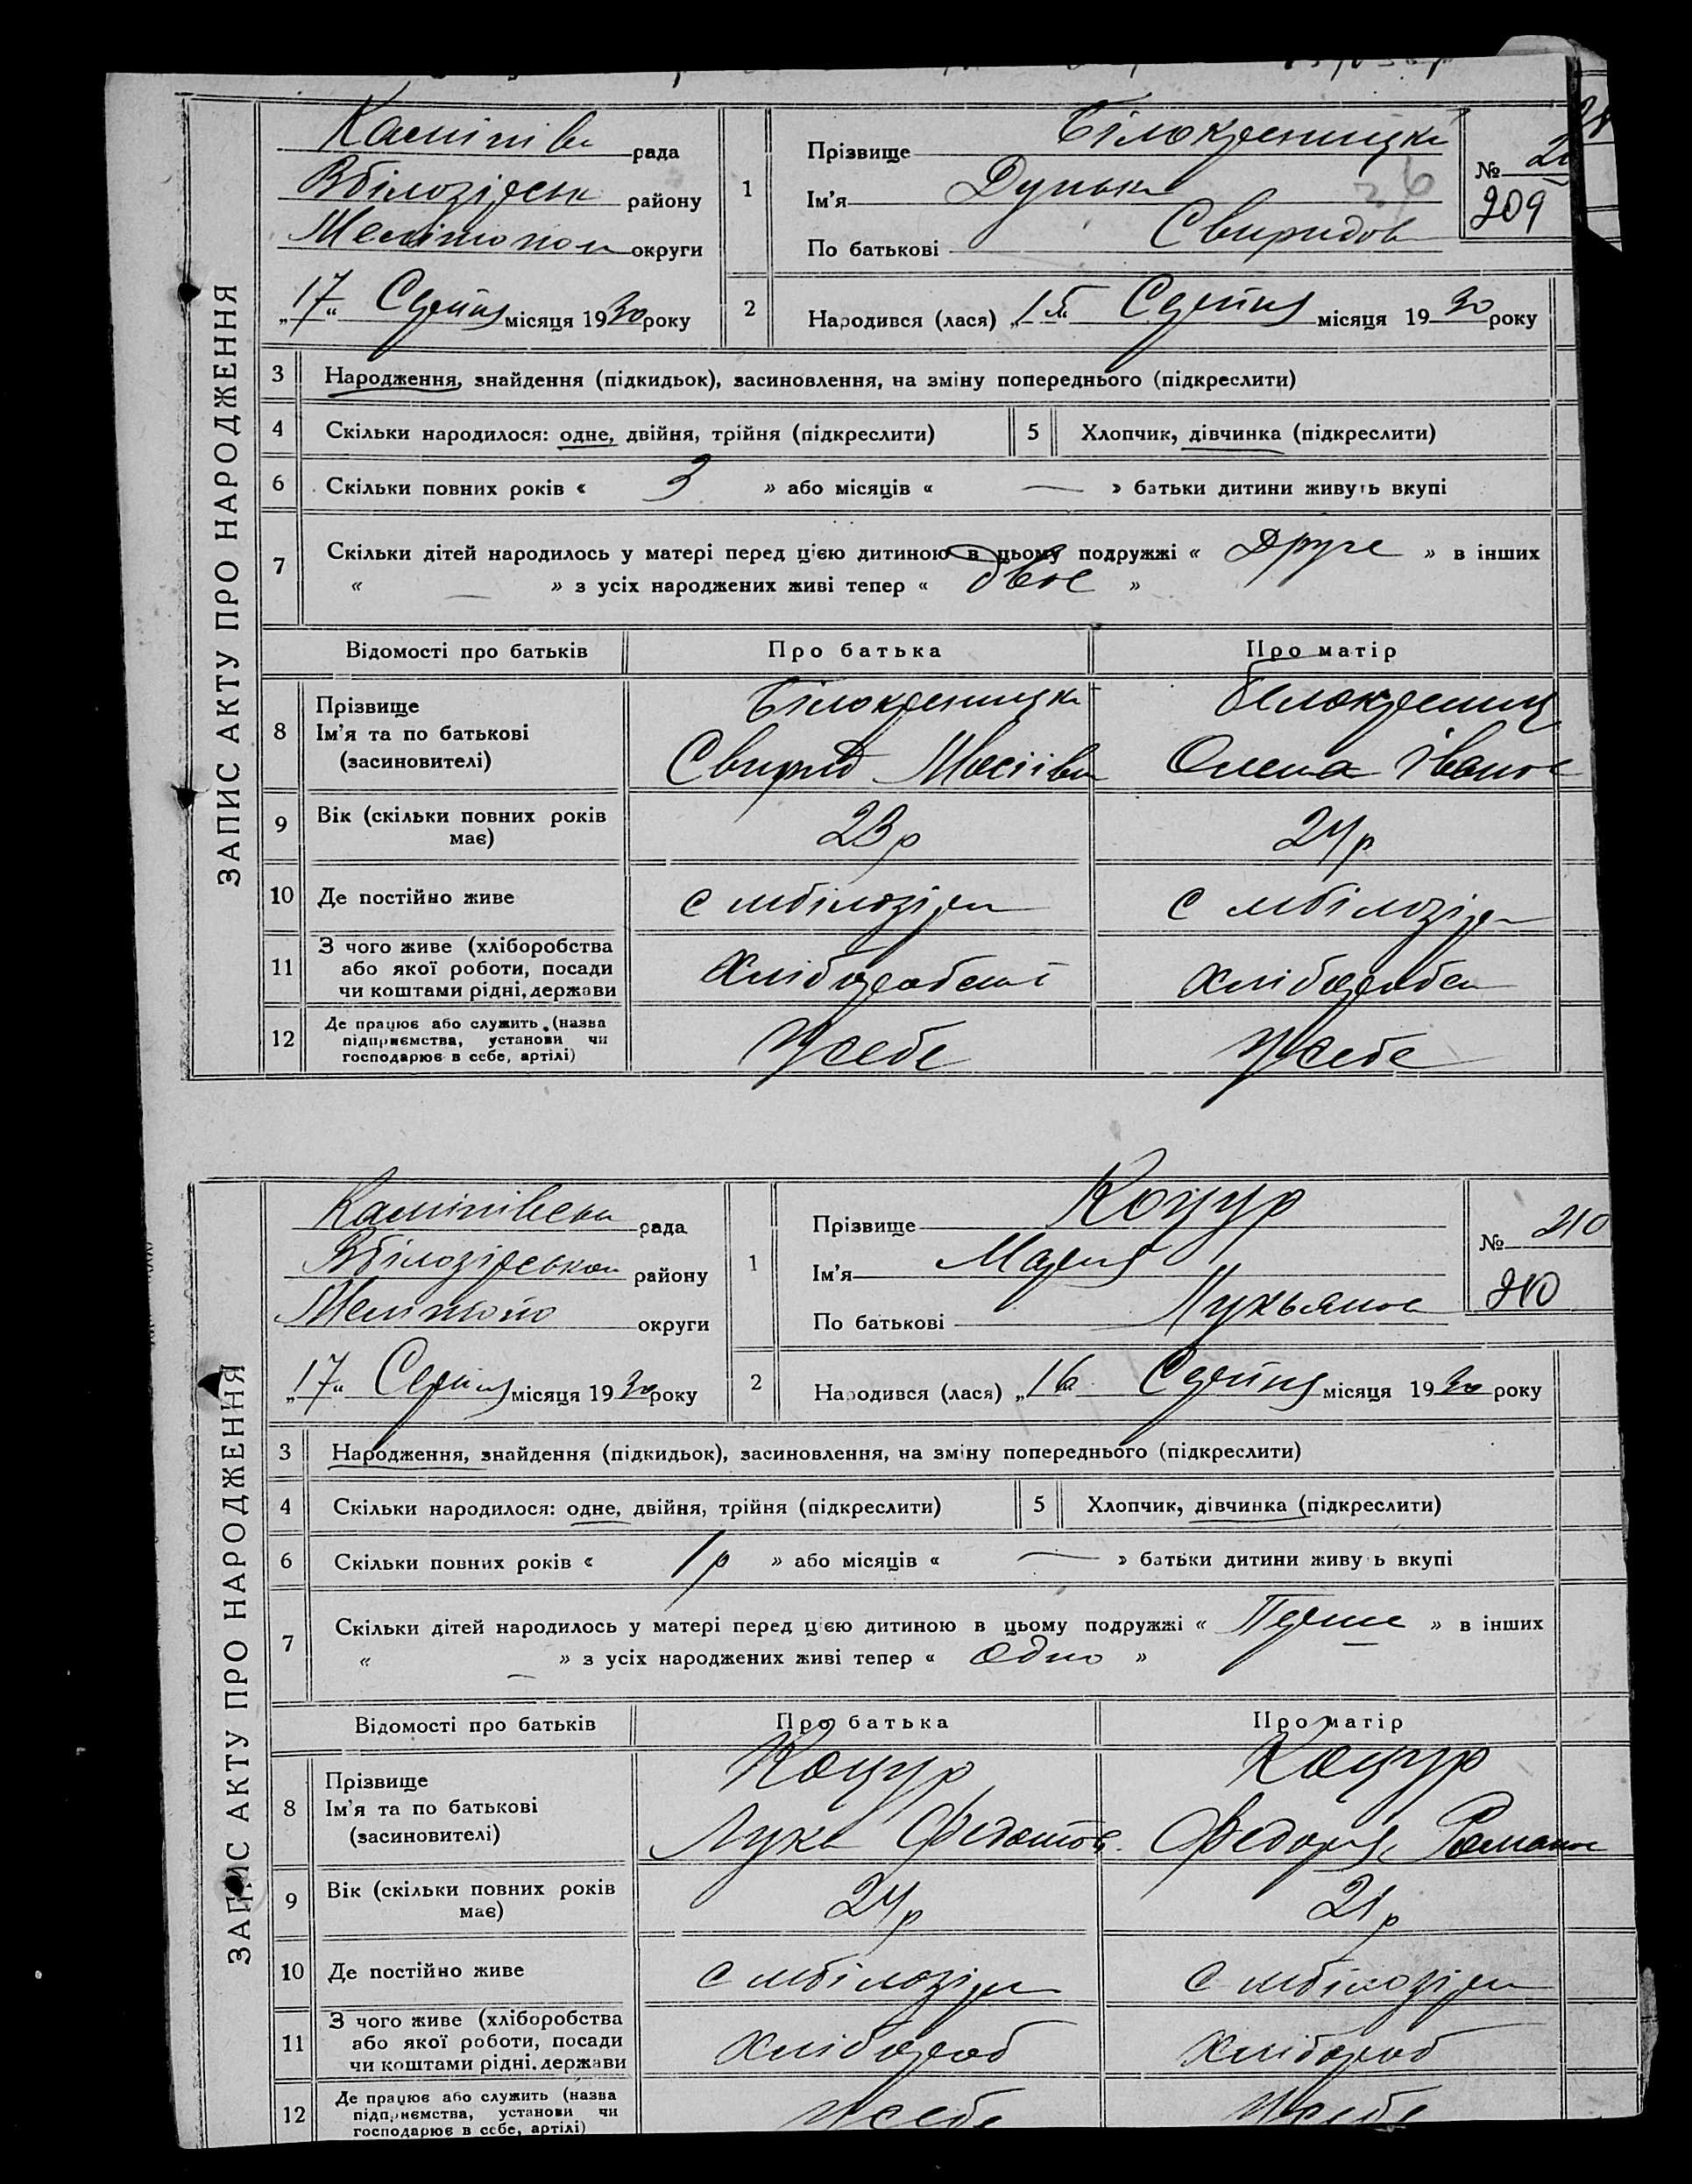 ЗАПИС АКТУ ПРО НАРОДЖЕННЯ
рада
Вбілозірськ району
округи
„17“ Серпня місяця 1930 року
1
Прізвище Білокреницька
Ім'я Дунька
По батькові Свиридов
№
209
2
Народився (лася) Серпня місяця 1930 року
3 Народження, знайдення (підкидьок), засиновлення, на зміну попереднього (підкреслити)
4 Скільки народилося: одне, двійня, трійня (підкреслити) 5 Хлопчик, дівчинка (підкреслити)
6 Скільки повних років « 3 » або місяців « — » батьки дитини живуть вкупі
7 Скільки дітей народилось у матері перед цією дитиною в цьому подружжі « Друге » в інших
« — » з усіх народжених живі тепер « двоє »
Відомості про батьків Про батька Про матір
8 Прізвище
Ім'я та по батькові
(засиновителі)
Білокреницьки
Свирид
Білокрениц
Олена Іванов
9 Вік (скільки повних років має) 23 р 24 р
10 Де постійно живе с мбілозірка с мбілозірка
11 З чого живе (хліборобства
або якої роботи, посади
чи коштами рідні, держави
12 Де працює або служить (назва
підприємства, установи чи
господарює в себе, артілі)
Усебе Усебе
ЗАПИС АКТУ ПРО НАРОДЖЕННЯ
рада
Вбілозірського району
округи
„17“ Серпня місяця 1930 року
1
Прізвище Коцур
Ім'я Мария
По батькові Лукьянов
№ 210
210
2
Народився (лася) „16“ Серпня місяця 1930 року
3 Народження, знайдення (підкидьок), засиновлення, на зміну попереднього (підкреслити)
4 Скільки народилося: одне, двійня, трійня (підкреслити) 5 Хлопчик, дівчинка (підкреслити)
6 Скільки повних років « 1 р » або місяців « — » батьки дитини живу ь вкупі
7 Скільки дітей народилось у матері перед цією дитиною в цьому подружжі « Перше » в інших
« — » з усіх народжених живі тепер « одно »
Відомості про батьків Про батька Про матір
8 Прізвище
Ім'я та по батькові
(засиновителі)
Коцур
Лука Федотов.
Коцур
Федора Романов
9 Вік (скільки повних років має) 24 р 21 р
10 Де постійно живе с мбілозірка с мбілозірка
11 З чого живе (хліборобства
або якої роботи, посади
чи коштами рідні, держави
Хлібороб Хлібороб
12 Де працює або служить (назва
підприємства, установи чи
господарює в себе, артілі)
Усебе Усебе